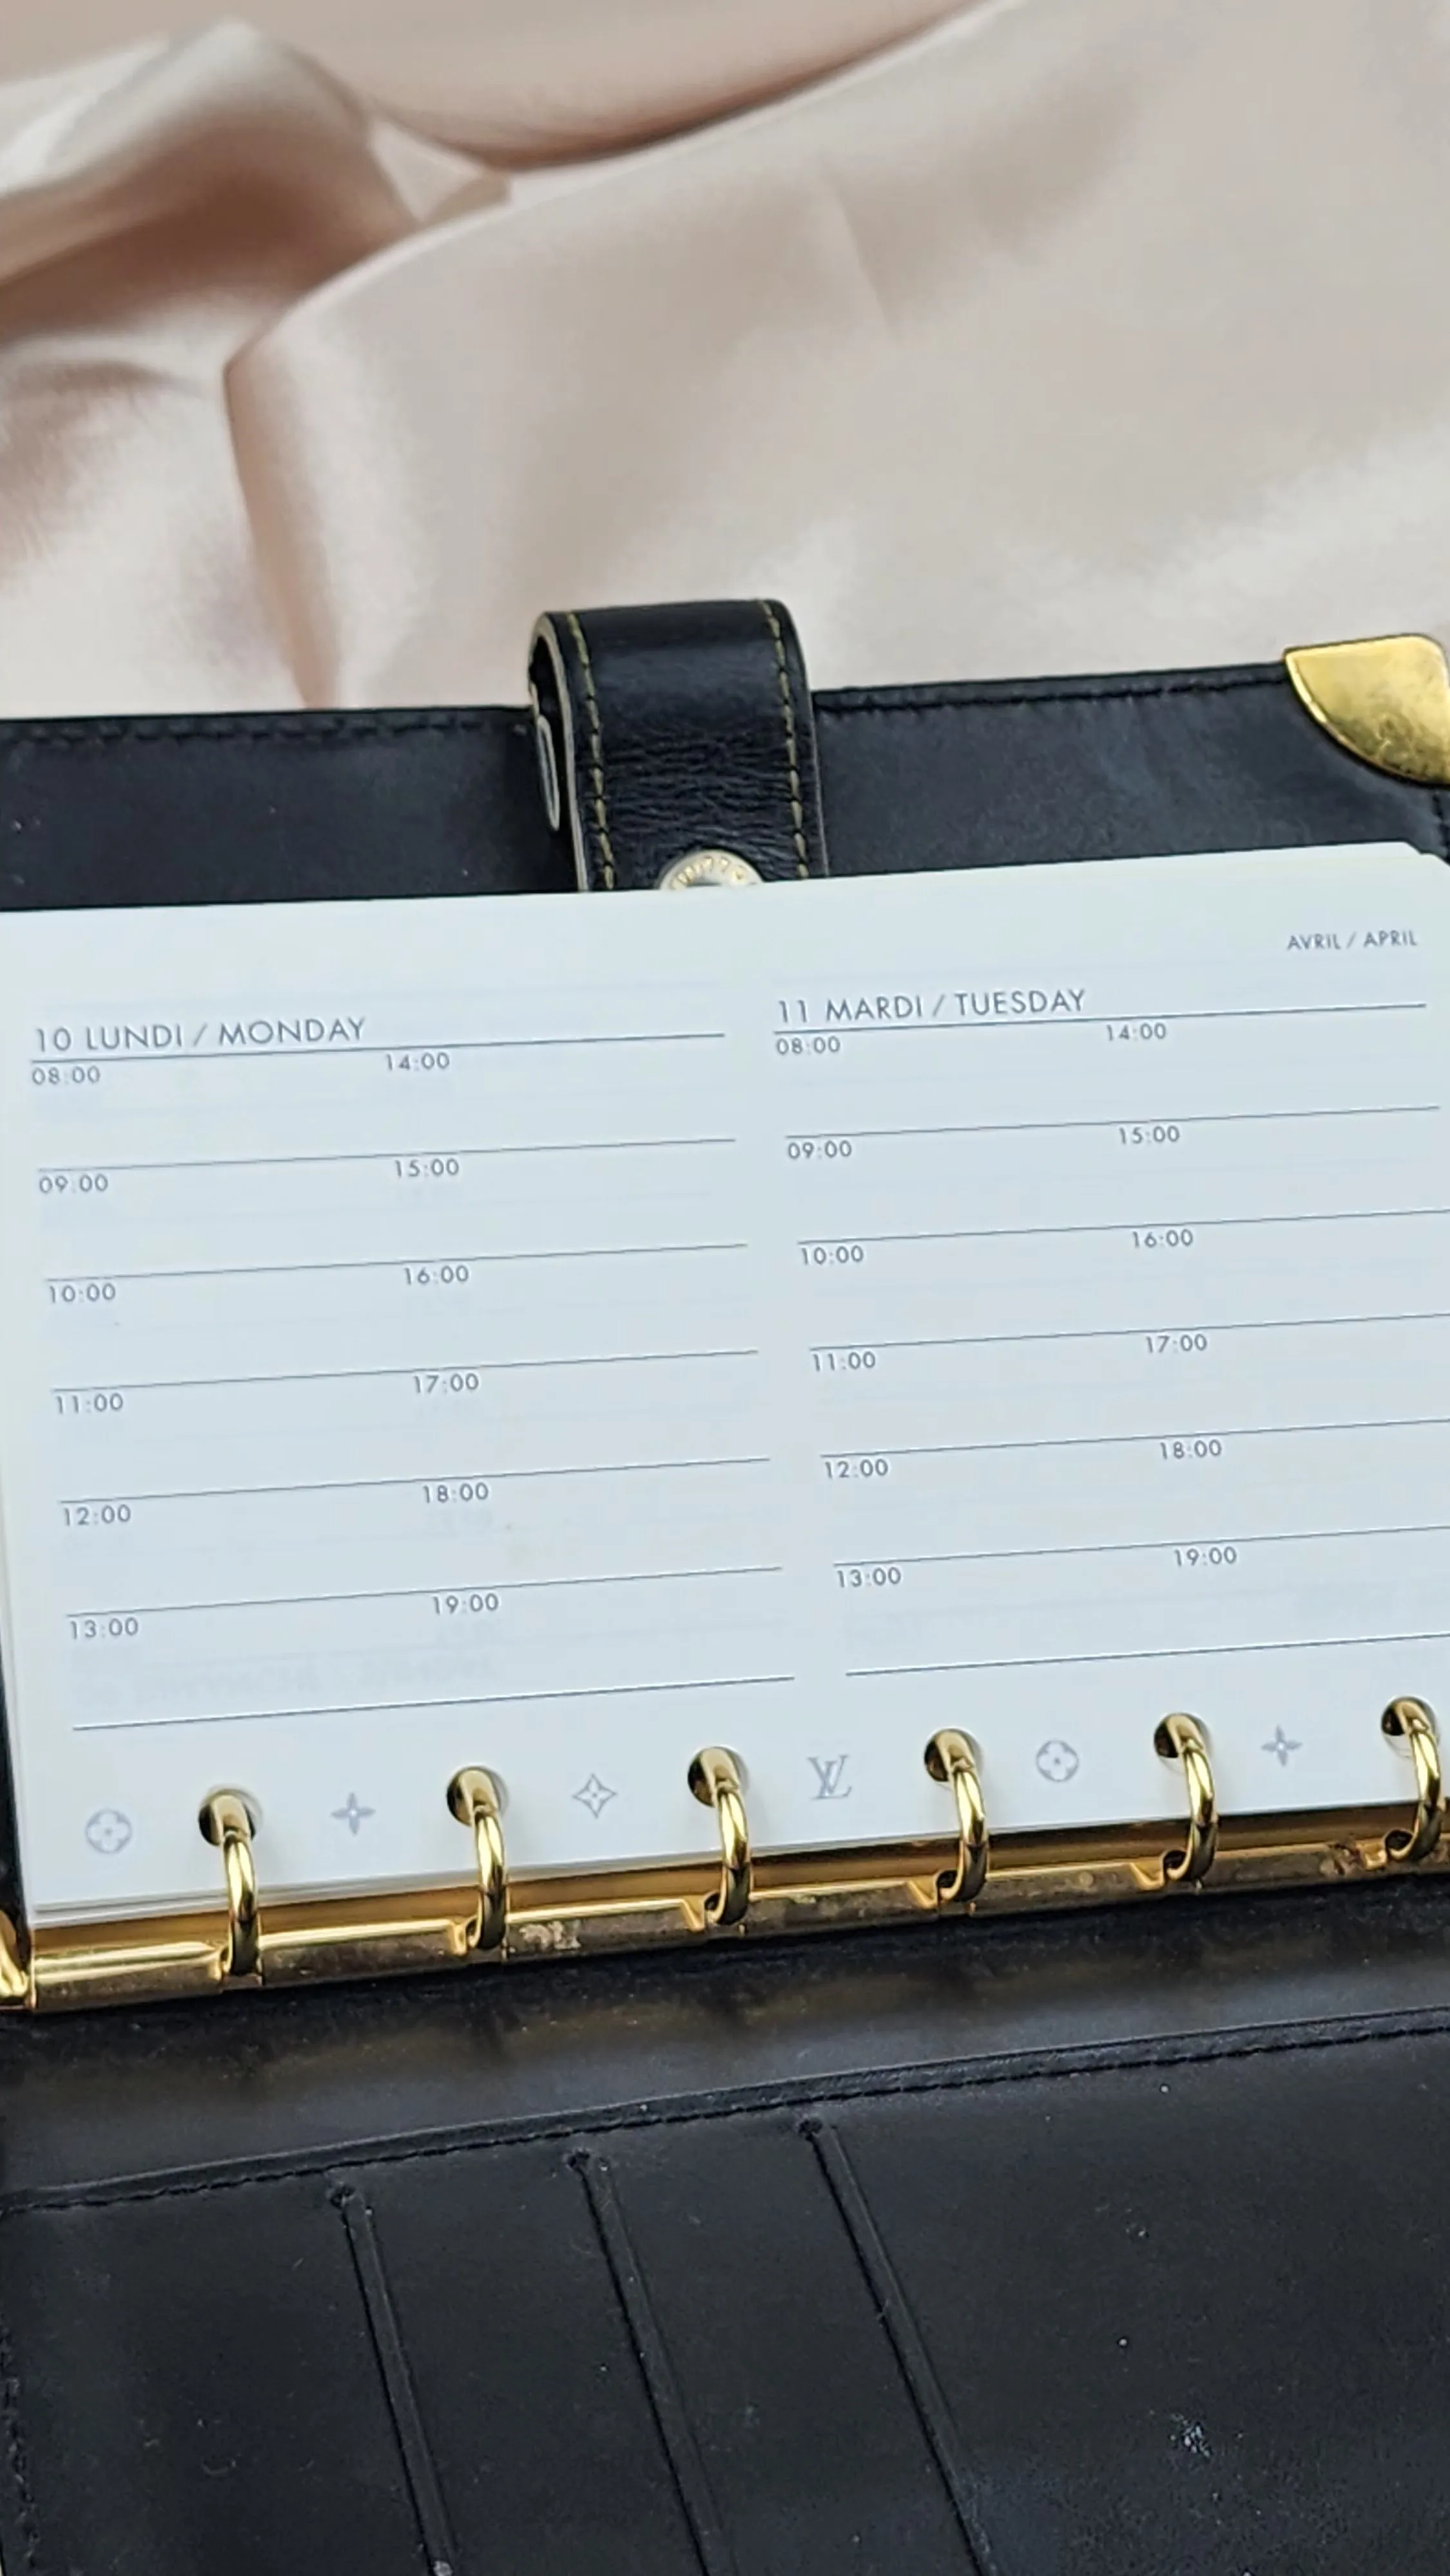 AVRIL / APRIL
10 LUNDI / MONDAY
08:00 14:00
09:00 15:00
10:00 16:00
11:00 17:00
12:00 18:00
13:00 19:00
11 MARDI / TUESDAY
08:00 14:00
09:00 15:00
10:00 16:00
11:00 17:00
12:00 18:00
13:00 19:00
LV